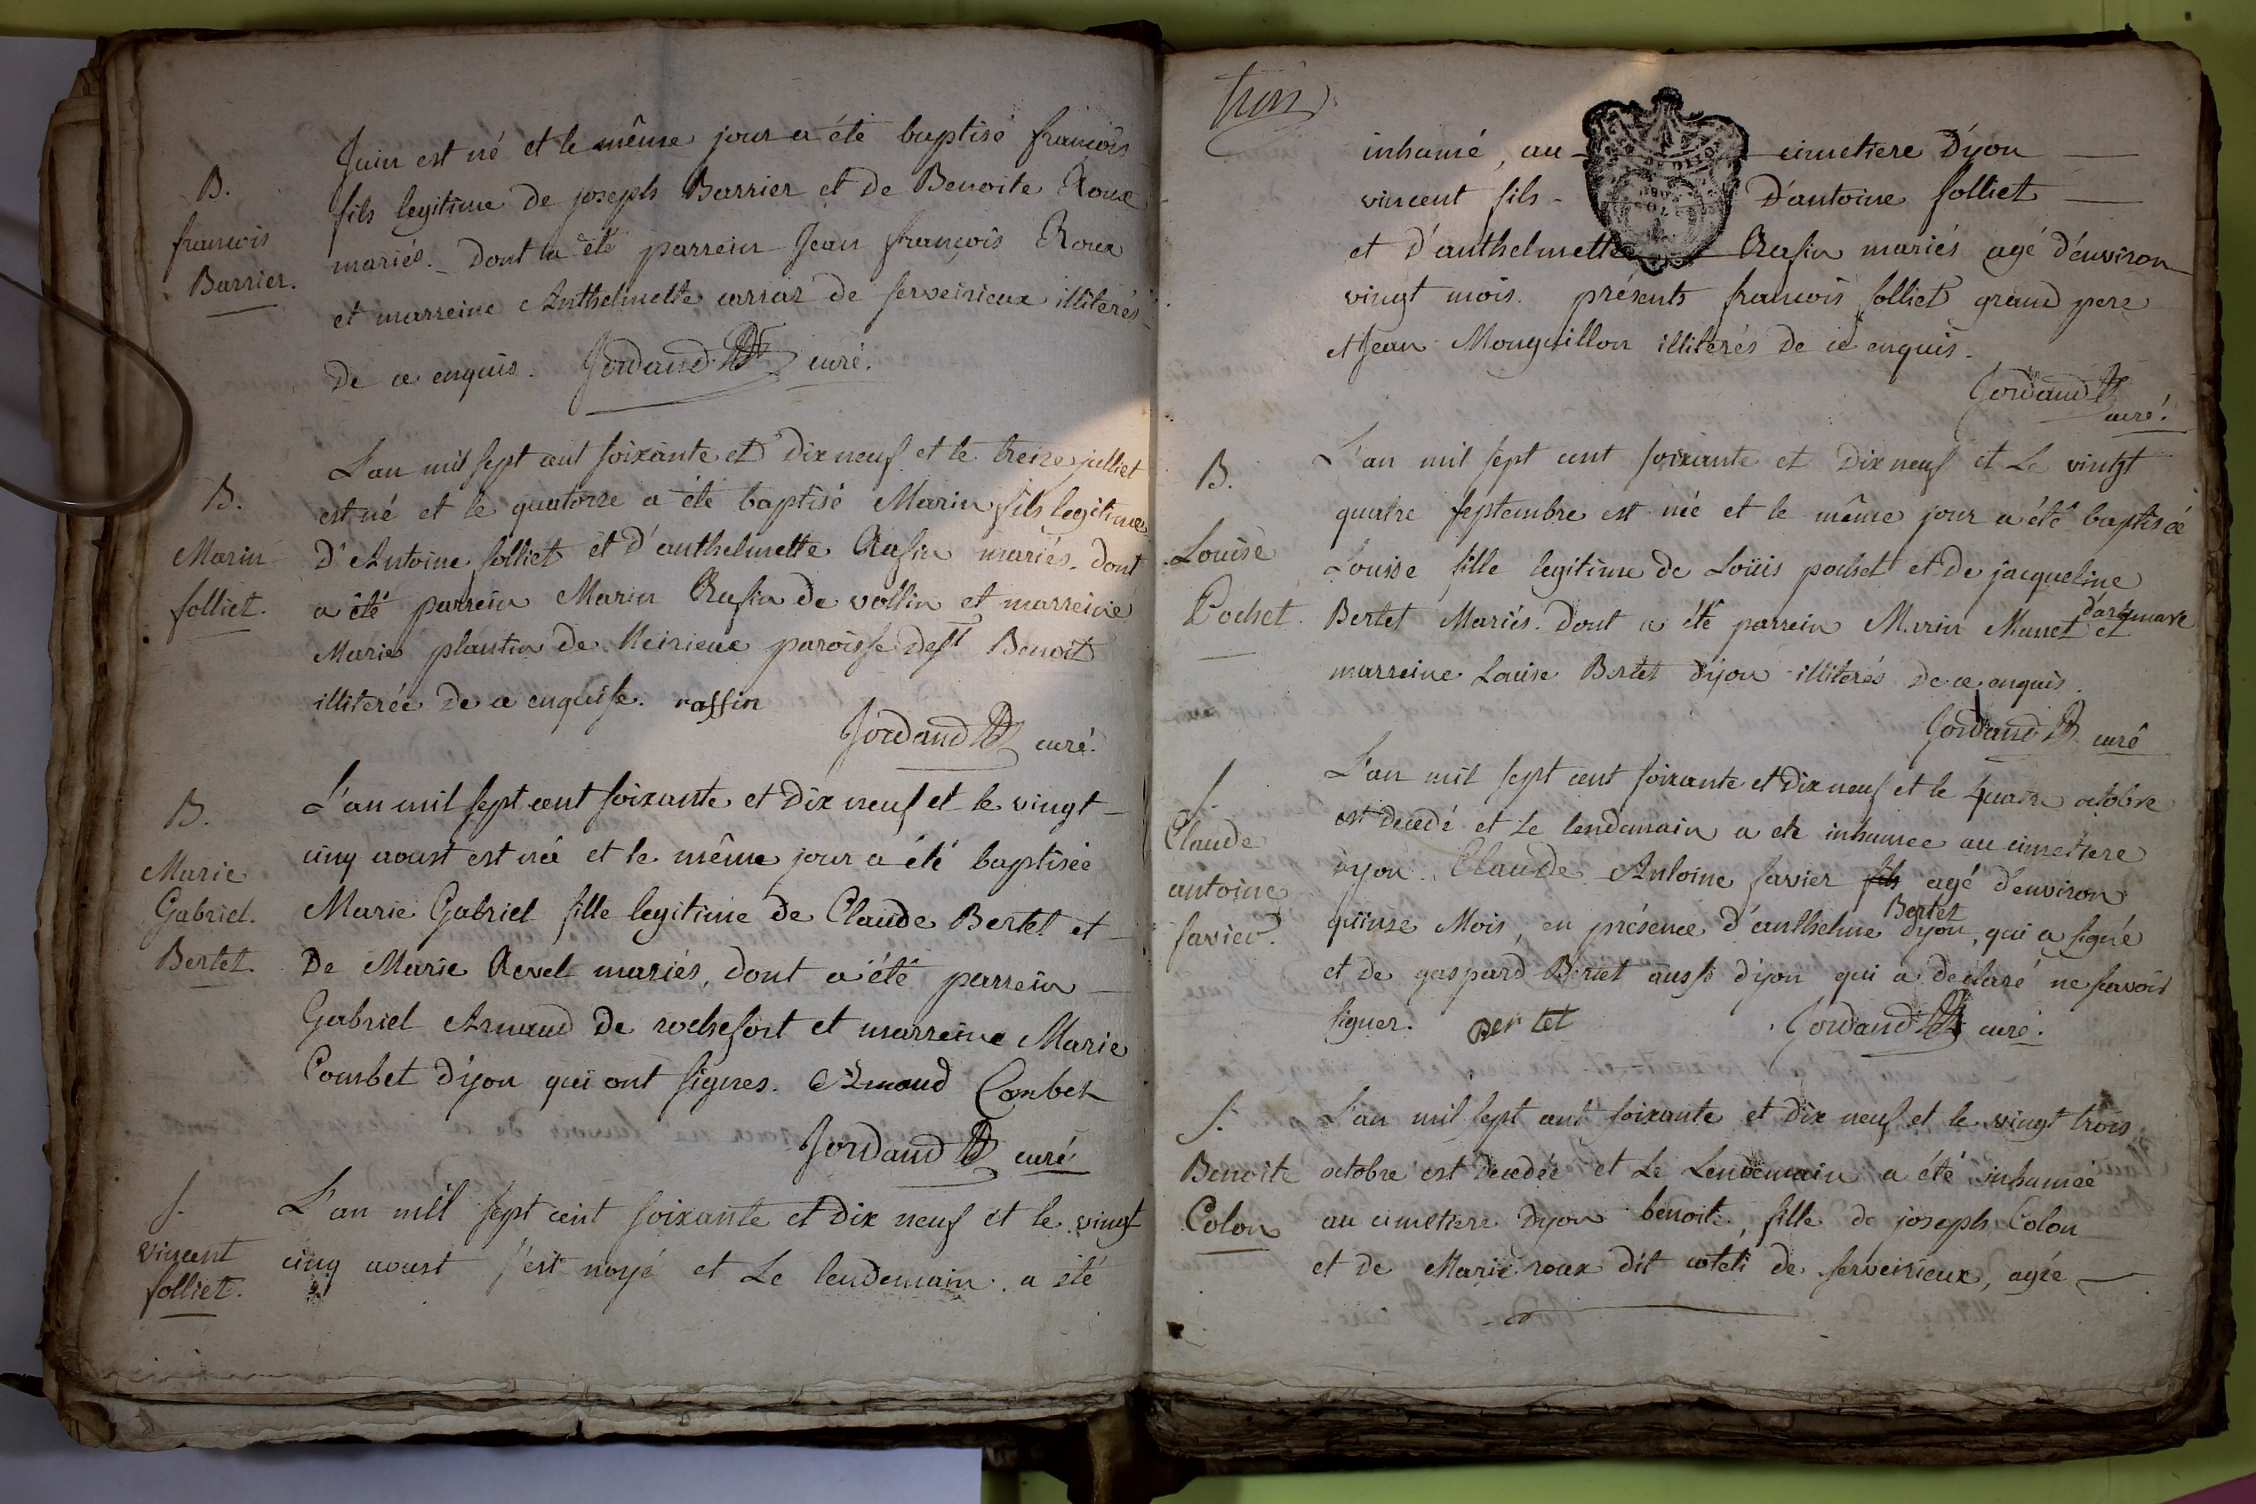 Juin est né et le même jour a été baptisé francois
B.
fils legitime de joseph Barrier et de Benoite Roux
francois
mariés. Dont la été parrein Jean françois Roux
Barrier.
et marreine Anthelmette carraz de serveirieux illiterés
de ce enquis. Jordand curé.
L'an mil sept cent soixante et dix neuf et le treize julliet
B.
est né et le quatorze a été baptisé Marin fils legitime
Marin
D'Antoine folliet et d'anthelmette Rafin mariés. dont
folliet.
a été parrein Marin Rafin de vollin et marreine
Marie plantin de Meirieux paroisse de st Benoit
illiterée de ce enquise. raffin
Jordand curé.
L'an mil sept cent soixante et dix neuf et le vingt
B.
cinq aoust est née et le même jour a été baptisée
Marie
Gabriel.
Marie Gabriel fille legitime de Claude Bertet et
Bertet.
De Marie Revel mariés, dont a été parrein
Gabriel Arnaud de rochefort et marreine Marie
Combet d'yon qui ont signes. Arnaud Combet
Jordand curé
f.
L'an mil sept cent soixante et dix neuf et le vingt
vincent
cinq aoust s'est noyé et Le lendemain a été
folliet.
trois
inhumé, au cimetiere D'yon
vincent fils D'antoine folliet
et d'anthelmette Rafin mariés agé d'environ
vingt mois. présents francois folliet grand pere
et Jean Monguillon illiterés de ce enquis.
Jordand
curé.
L'an mil sept cent soixante et dix neuf et Le vintgt
B.
quatre septembre est née et le même jour a été baptisée
Louise
Louise fille legitime de Loüis pochet et de jacqueline
Pochet.
d'arkmare
Bertet Mariés. Dont a été parrein Marin Manet et
marreine Louise Bertet d'yon illiterés de ce enquis.
Jordand curé
f.
L'an mil sept cent soixante et dix neuf et le quatre octobre
Claude
est decedé et Le lendemain a ete inhumee au cimetiere
antoine
d'yon. Claude Antoine favier fils agé d'environ
favier.
Bertet
quinze Mois, en présence d'anthelme d'yon, qui a signé
et de gaspard Bertet aussi d'yon qui a declaré ne savoir
signer. Bertet Jordand curé.
f.
L'an mil sept cent soixante et dix neuf et le vingt trois
Benoite
octobre est decedée et Le Lendemain a été inhumée
Colon
au cimetiere d'yon benoite, fille de joseph Colon
et de Marie roux dit cotêti de serveirieux, agée